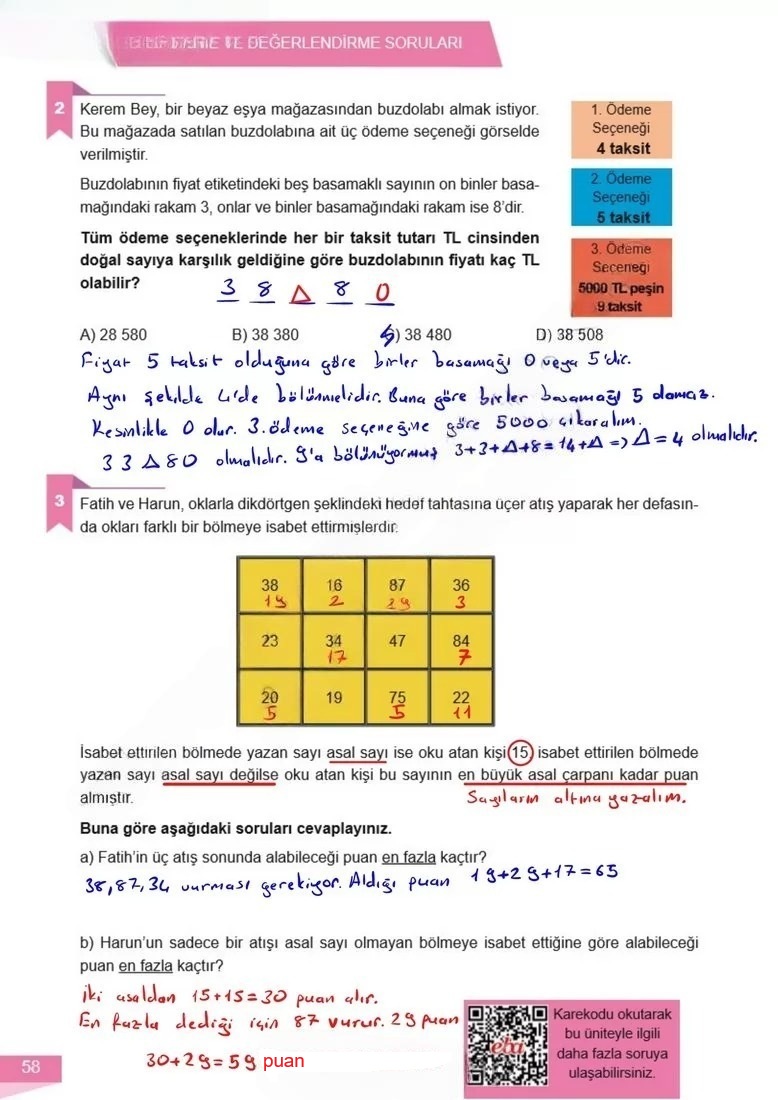 VE DEĞERLENDİRME SORULARI
2
Kerem Bey, bir beyaz eşya mağazasından buzdolabı almak istiyor.
Bu mağazada satılan buzdolabına ait üç ödeme seçeneği görselde
verilmiştir.
1. Ödeme
Seçeneği
4 taksit
2. Ödeme
Seçeneği
5 taksit
3. Ödeme
Seçeneği
5000 TL peşin
9 taksit
Buzdolabının fiyat etiketindeki beş basamaklı sayının on binler basa-
mağındaki rakam 3, onlar ve binler basamağındaki rakam ise 8'dir.
Tüm ödeme seçeneklerinde her bir taksit tutarı TL cinsinden
doğal sayıya karşılık geldiğine göre buzdolabının fiyatı kaç TL
olabilir?
3 8 Δ 8 0
A) 28 580 B) 38 380 C) 38 480 D) 38 508
Fiyat 5 taksit olduğuna göre birler basamağı 0 veya 5'dir.
Aynı şekilde 4'de bölünmelidir. Buna göre birler basamağı 5 olamaz.
Kesinlikle 0 olur. 3. ödeme seçeneğine göre 5000 çıkaralım.
33Δ80 olmalıdır. 9'a bölünüyormuş 3+3+Δ+8=14+Δ => Δ=4 olmalıdır.
3
Fatih ve Harun, oklarla dikdörtgen şeklindeki hedef tahtasına üçer atış yaparak her defasın-
da okları farklı bir bölmeye isabet ettirmişlerdir.
38 16 87 36
19 2 29 3
23 34 47 84
17 7
20 19 75 22
5 5 11
İsabet ettirilen bölmede yazan sayı asal sayı ise oku atan kişi 15, isabet ettirilen bölmede
yazan sayı asal sayı değilse oku atan kişi bu sayının en büyük asal çarpanı kadar puan
almıştır.
Sayıların altına yazalım.
Buna göre aşağıdaki soruları cevaplayınız.
a) Fatih'in üç atış sonunda alabileceği puan en fazla kaçtır?
38,87,34 vurması gerekiyor. Aldığı puan 19+29+17=65
b) Harun'un sadece bir atışı asal sayı olmayan bölmeye isabet ettiğine göre alabileceği
puan en fazla kaçtır?
İki asaldan 15+15=30 puan alır.
En fazla dediği için 87 vurur. 29 puan
30+29=59 puan
eba
Karekodu okutarak
bu üniteyle ilgili
daha fazla soruya
ulaşabilirsiniz.
58